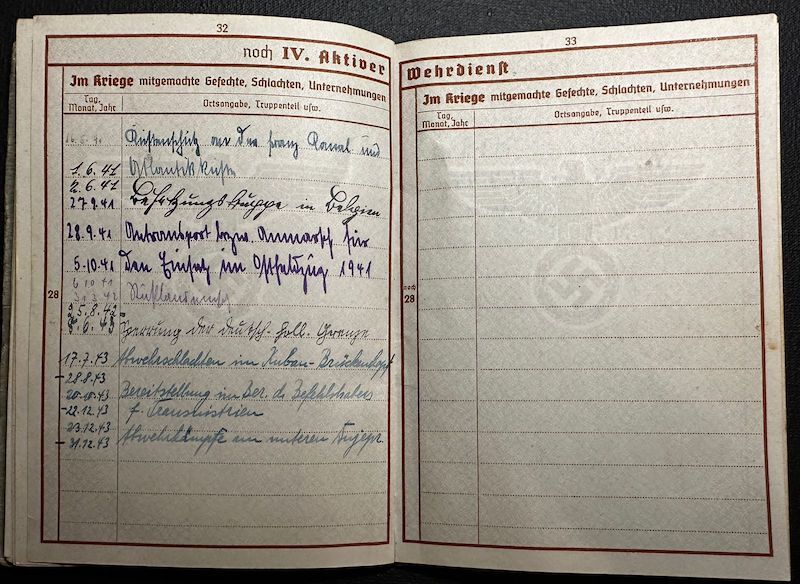 32
noch IV. Aktiver
Im Kriege mitgemachte Gefechte, Schlachten, Unternehmungen
Tag, Monat, Jahr
Ortsangabe, Truppenteil usw.
Küstenschutz an der franz Kanal und
1.6.41 Atlantikküste
2.6.41
27.9.41 Besatzungstruppe in Belgien
28.9.41 Antransport bzw. Anmarsch für
5.10.41 den Einsatz im Ostfeldzug 1941
6 10 41
28
6.6.43 Sperrung der deutsch-holl. Grenze
17.7.43 Abwehrschlachten im Kuban-Brückenkopf
-28.8.43
20.10.43 Bereitstellung im Ber. d. Befehlshabers
-22.12.43 f. Transnistrien
23.12.43 Abwehrkämpfe am unteren Dnjepr
-31.12.43
33
Wehrdienst
Im Kriege mitgemachte Gefechte, Schlachten, Unternehmungen
Tag, Monat, Jahr
Ortsangabe, Truppenteil usw.
noch
28